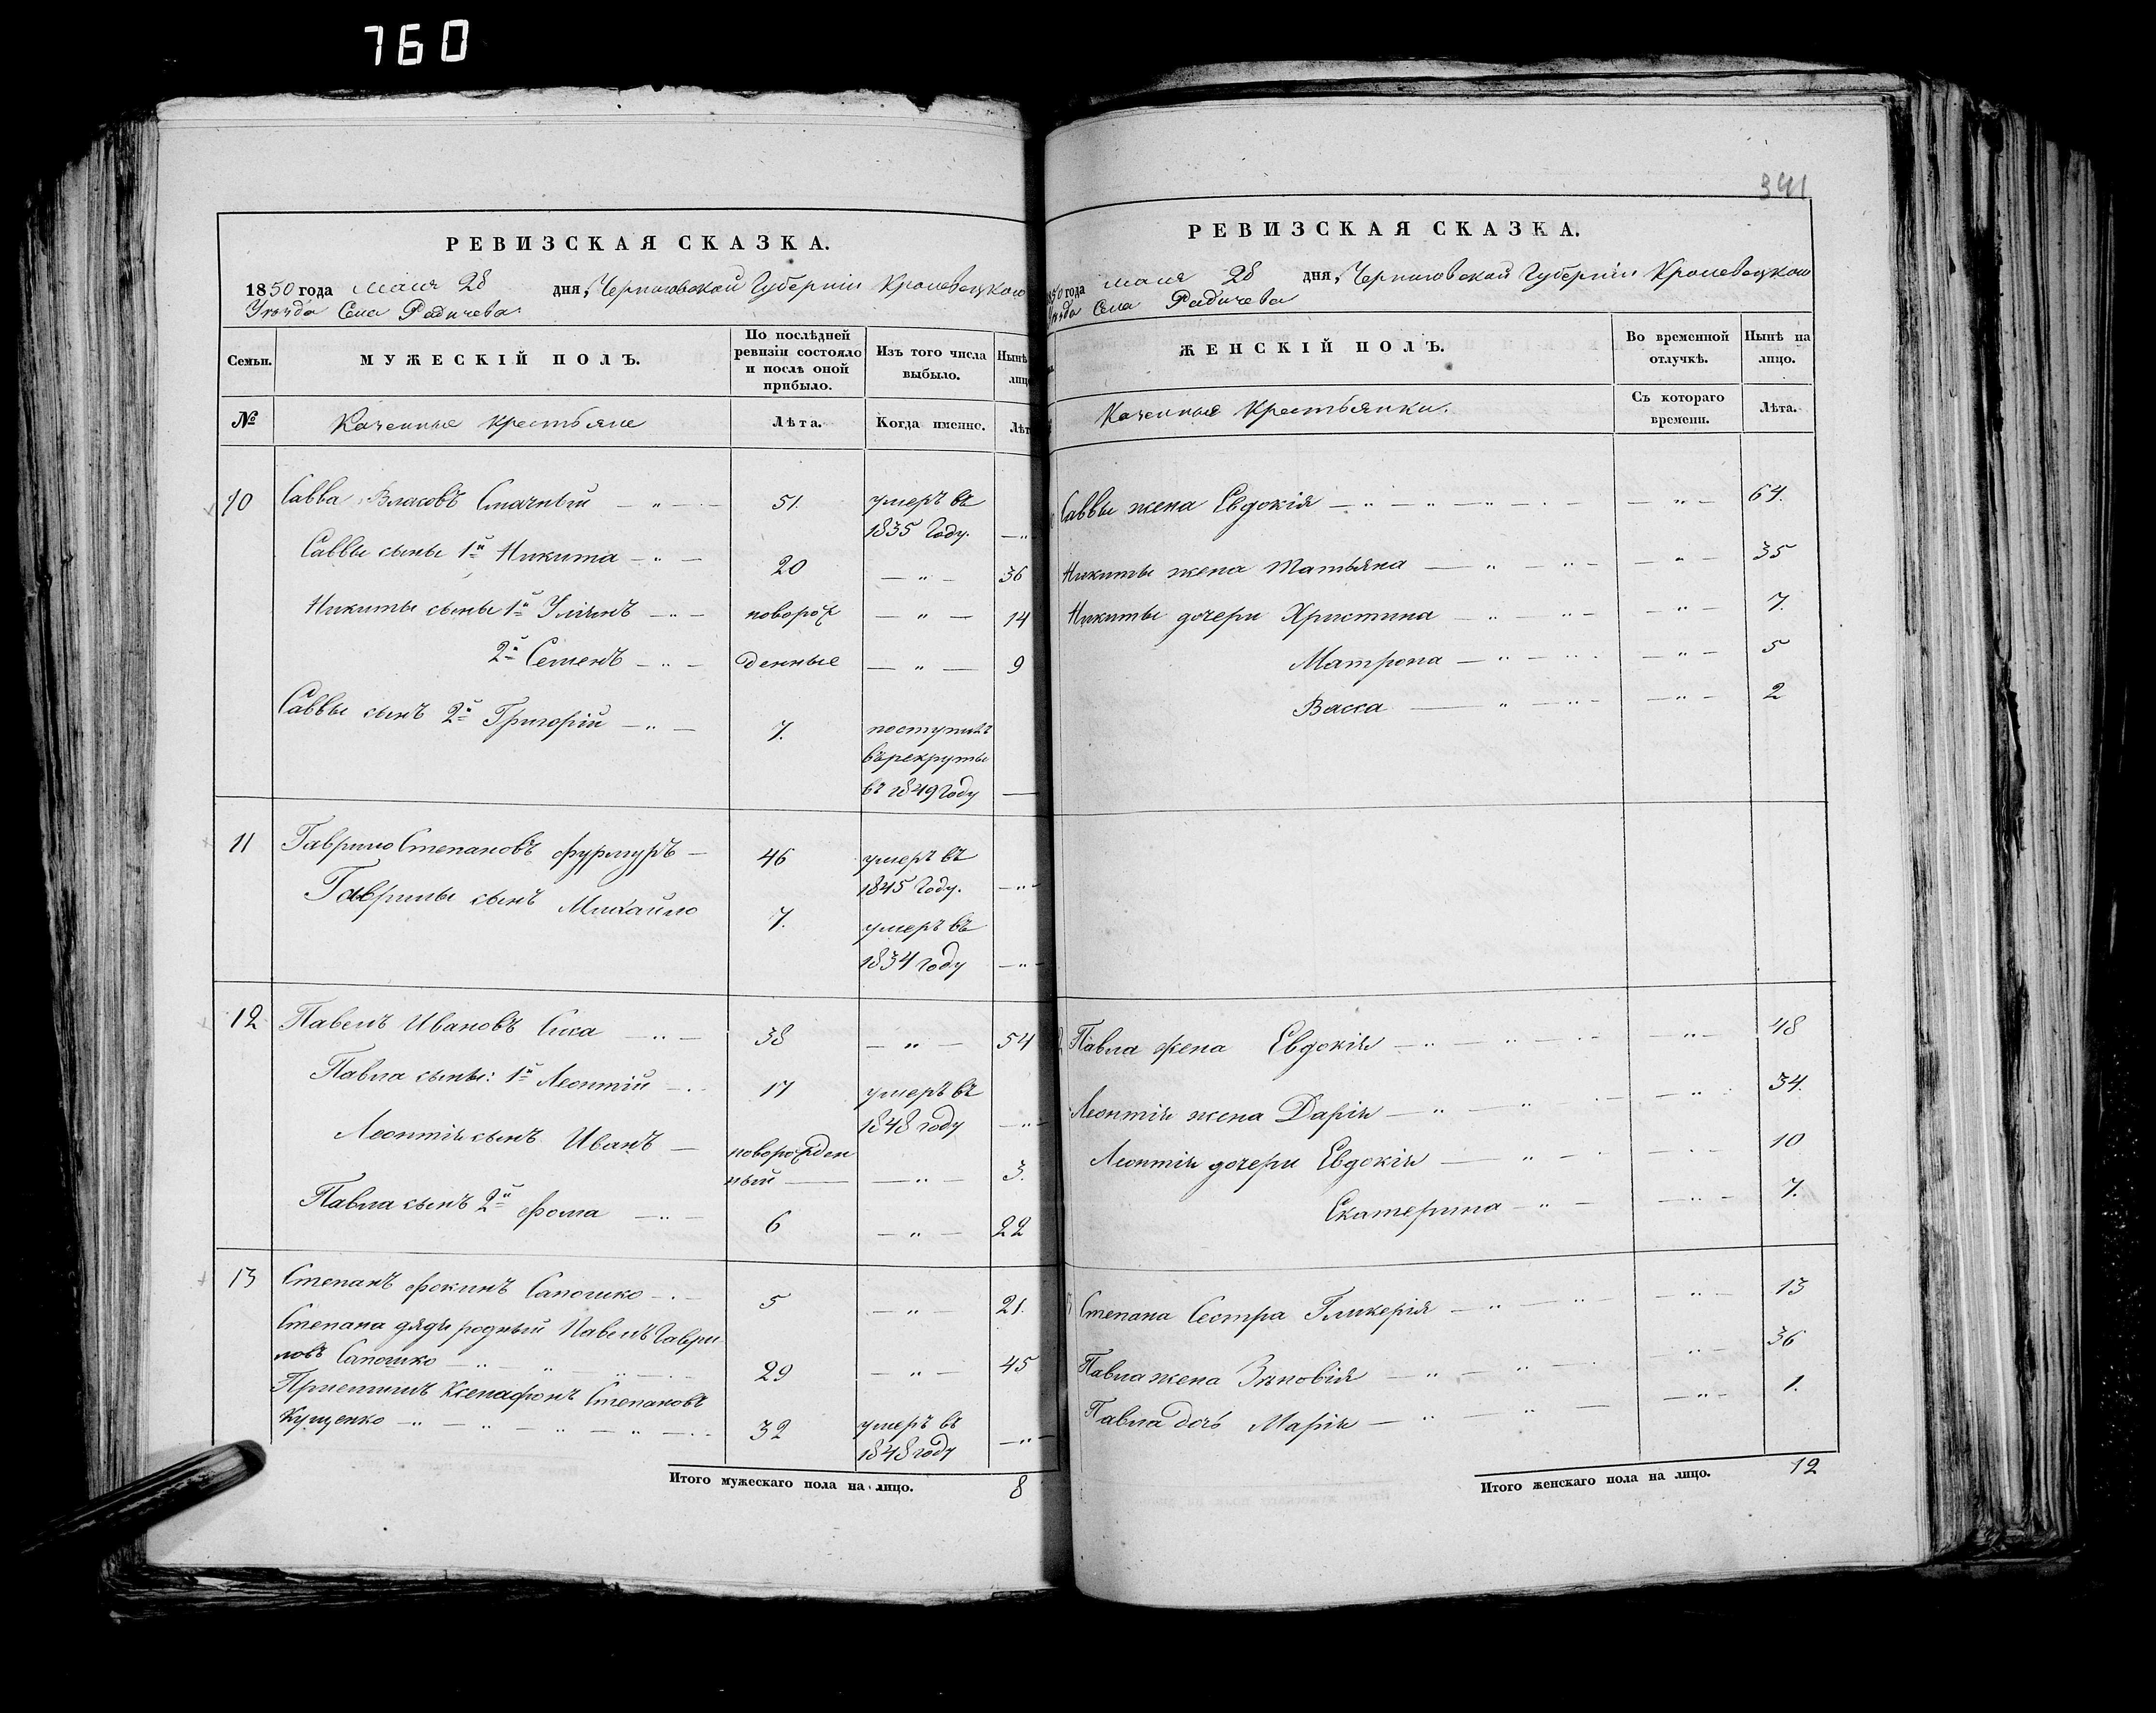 760
РЕВИЗСКАЯ СКАЗКА.
1850 года мая 28 дня, Черниговской Губерніи Кролевецкаго
Уѣзда Села Радичева.
Семьи. МУЖЕСКІЙ ПОЛЪ. По послѣдней ревизіи состояло и послѣ оной прибыло. Изъ того числа выбыло. Нынѣ лицо
№ Казенные крестьяне Лѣта. Когда именно. Лѣт
10 Савва Власовъ Смачный — „ — 51. умеръ въ
1835 году. — „
Саввы сыны 1й Никита — „ — 20 — „ — 36
Никиты сыны 1й — „ — новорож — „ — 14
2й Семенъ — „ — денные — „ — 9
Саввы сынъ 2й Григорій — „ — 7. поступилъ
въ рекруты
въ 1849 году —
11 Гаврило Степановъ — 46 умеръ въ
1845 году. — „ —
Гаврилы сынъ Михайло 7. умеръ въ
1834 году — „ —
12 Павелъ Ивановъ Сиса — „ — 38 — „ — 54
Павла сыны: 1й Леонтій — „ 17 умеръ въ
1848 году — „ —
Леонтія сынъ Иванъ — новорожден
ный — — „ — 3.
Павла сынъ 2й Фома — „ — 6 — „ — 22
13 Степанъ Фокинъ Сапошко — „ — 5 — „ — 21.
Степана дядя родный Павелъ Гаври
ловъ Сапошко — „ — „ — 29 — „ — 45
Приемышъ Ксенафонъ Степановъ
Кущенко — „ — „ — „ — 32 умеръ въ
1848 году — „ —
Итого мужескаго пола на лицо. 8
341
РЕВИЗСКАЯ СКАЗКА.
1850 года мая 28 дня, Черниговской Губерніи Кролевецкаго
Уѣзда Села Радичева
ЖЕНСКІЙ ПОЛЪ. Во временной отлучкѣ. Нынѣ на лицо.
Казенныя Крестьянки. Съ котораго времени. Лѣта.
Саввы жена Евдокія — „ — „ — „ — — „ — 64.
Никиты жена Татьяна — „ — „ — — „ — 35
Никиты дочери Христина — „ — „ — — „ — 7.
Матрона — „ — „ — „ — 5
Васса — „ — „ — — „ — 2
Павла жена Евдокія — „ — „ — — „ — 48
Леонтія жена Дарія — „ — „ — — „ — 34.
Леонтія дочери Евдокія — „ — — „ — 10
Екатерина — „ — — „ — 7.
Степана Сестра Гликерія — „ — „ — — „ — 13
Павла жена Зѣновія — „ — „ — — „ — 36
Павла дочь Марія — „ — „ — — „ — 1.
Итого женскаго пола на лицо. 12